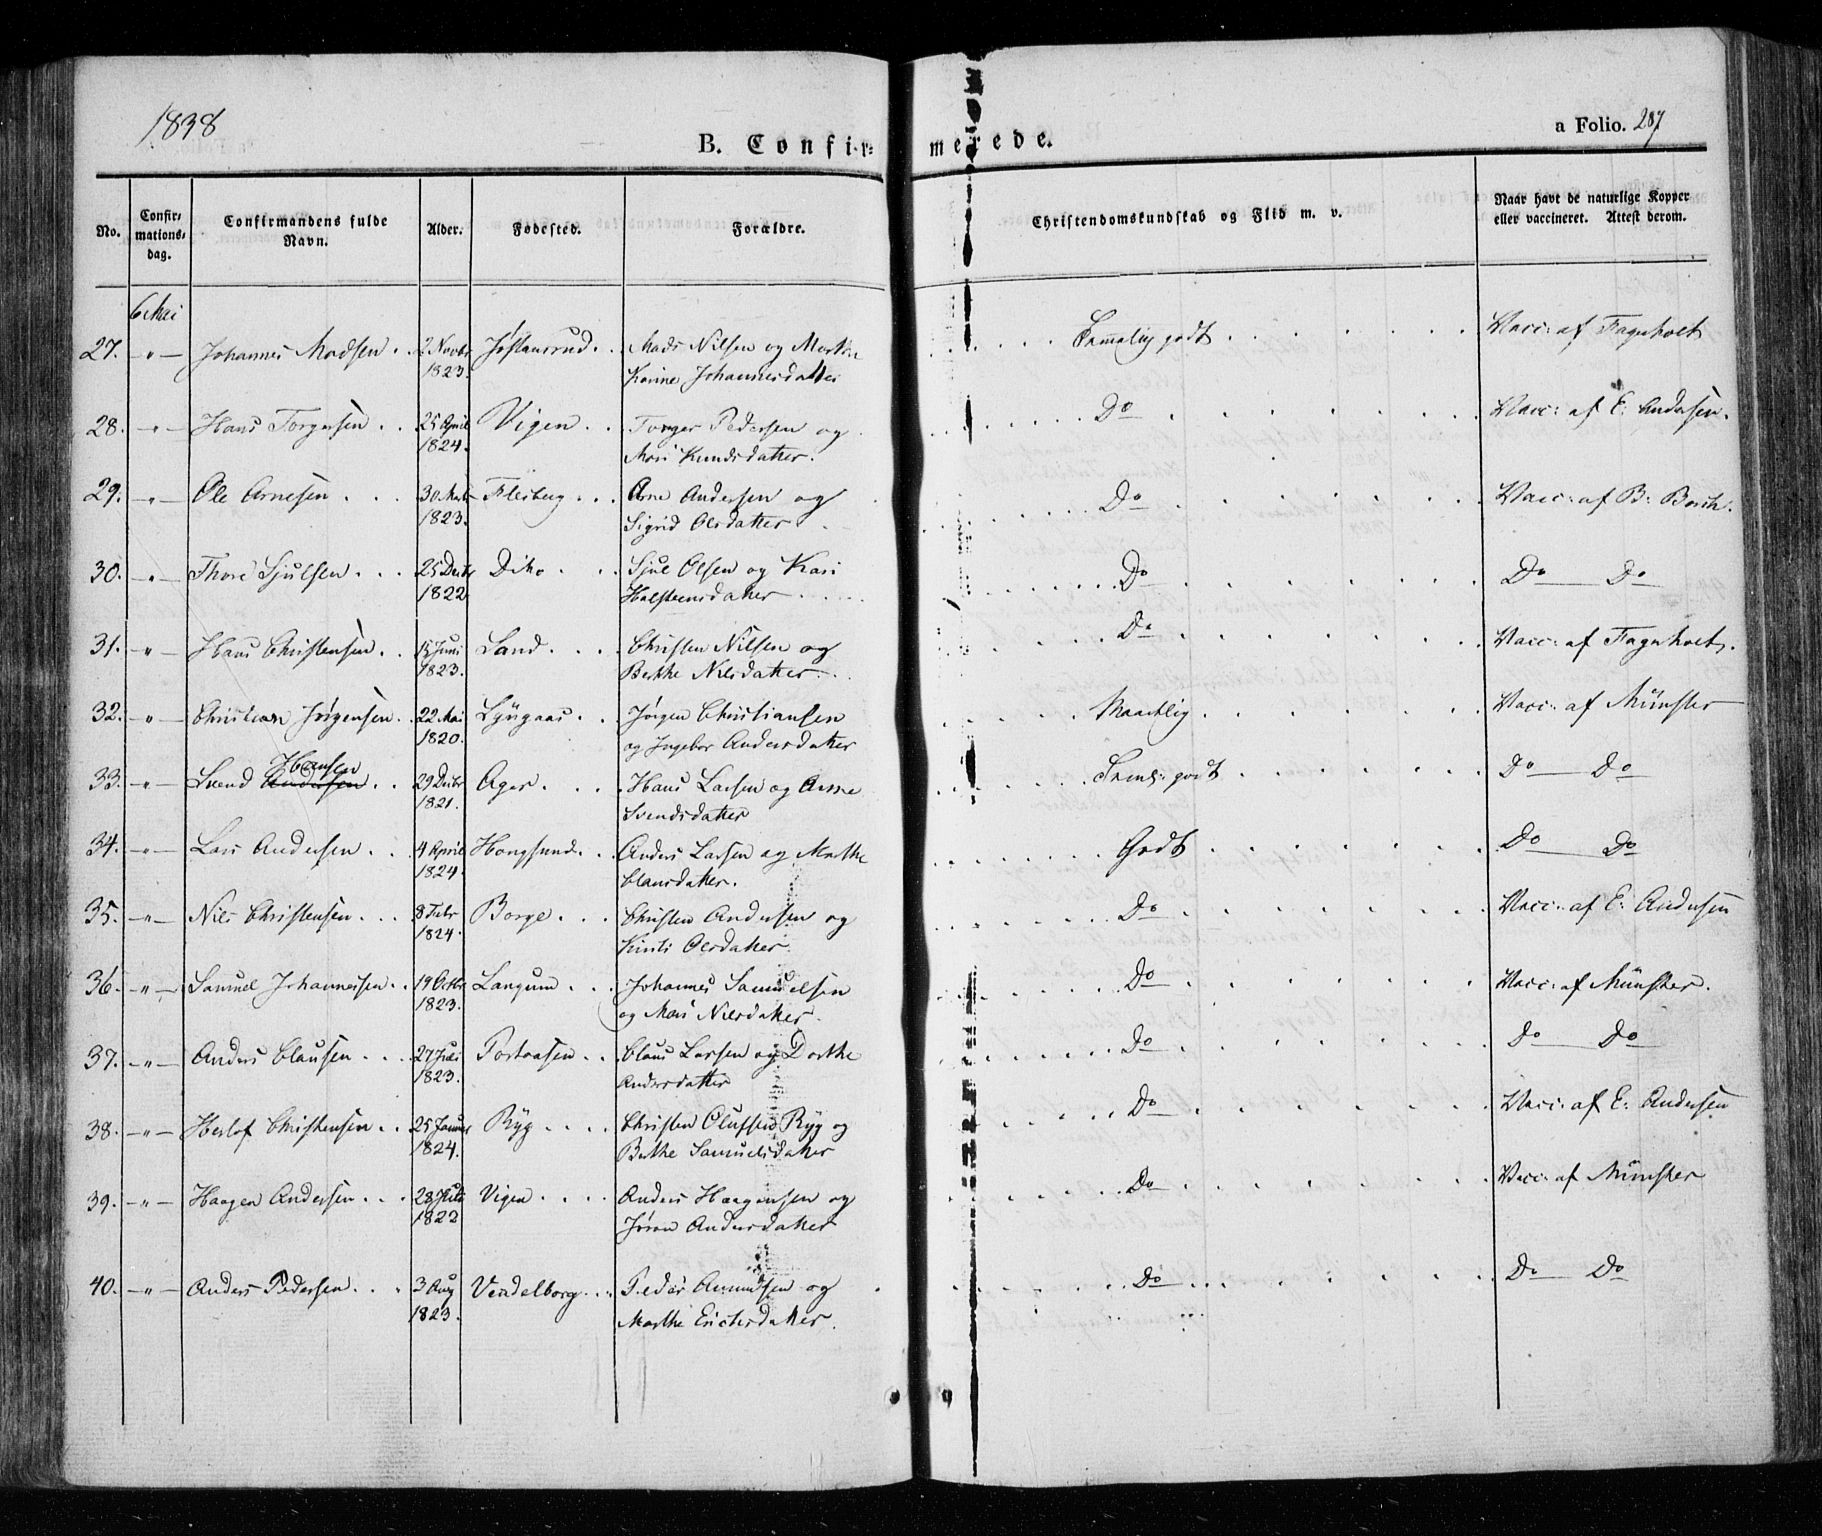 1838
B. Confirmerede.
a Folio. 287
No.
Confirmations-dag.
Confirmandens fulde Navn.
Alder.
Fødested.
Forældre.
Christendomskundskab og Flid m. v.
Naar havt de naturlige Kopper eller vaccineret. Attest derom.
6 Mai
27. -"- Johannes Madsen . 2 Novbr 1823. Mads Nilsen og Karine Johannesdatter Temmelig godt Vacc: af Fagnholt
28. -"- Hans Torgersen . . 25 April 1824. Vigen . . Torger Pedersen og Mari Knudsdatter. Do Vacc: af E: Andersen.
29. -"- Ole Arnesen . . . 30 1823. Flesberg . . . Arne Andersen og Sigrid Olsdatter Do Vacc: af B: Borch.
30. -"- Thore Sjulsen . . . 25 Decbr 1822. Dito . . . Sjul Olsen og Kari Halsteensdatter Do Do Do
31. -"- Hans Christensen . . 15 Juni 1823. Land . . . Christen Nilsen og Berthe Nilsdatter . . Do Vacc: af Fagnholt.
32. -"- Christian Jørgensen . 22 Mai 1820. Lyngaas . . Jørgen Christiansen og Ingebor Andersdatter Maadelig Vacc: af Münster
33. -"- Svend Andersen Hansen . . 29 Decbr 1821. Ager . . . Hans Larsen og Anne Svendsdatter Teml: godt Do Do
34. -"- Lars Andersen . . 4 April 1824. Hougsund . . Anders Larsen og Marthe Clausdatter. Godt Do Do
35. -"- Nils Christensen . . . 8 Febr 1824. Borge . . . Christen Andersen og Kirsti Olsdatter Do Vacc: af E: Andersen
36. -"- Samuel Johannessen . . 19 Octbr 1823. Langum . . . Johannes Samuelsen og Mari Nilsdatter. Do Vacc: af Münster.
37. -"- Anders Clausen . . . 27 Juli 1823. Claus Larsen og Dorthe Andersdatter Do Do Do
38. -"- Herlof Christensen . . 25 Januar 1824. Ryg . . . . Christen Olufsen Ryg og Berthe Samuelsdatter Do Vacc: af E: Andersen
39. -"- Haagen Andersen . . . 28 Juli 1822 Vigen . . . . Anders Haagensen og Jøran Andersdatter Do Vacc: af Münster
40. -"- Anders Pedersen . . . 3 Aug 1823. Vendelborg . . . Peder Amundsen og Marthe Erichsdatter. Do Do Do